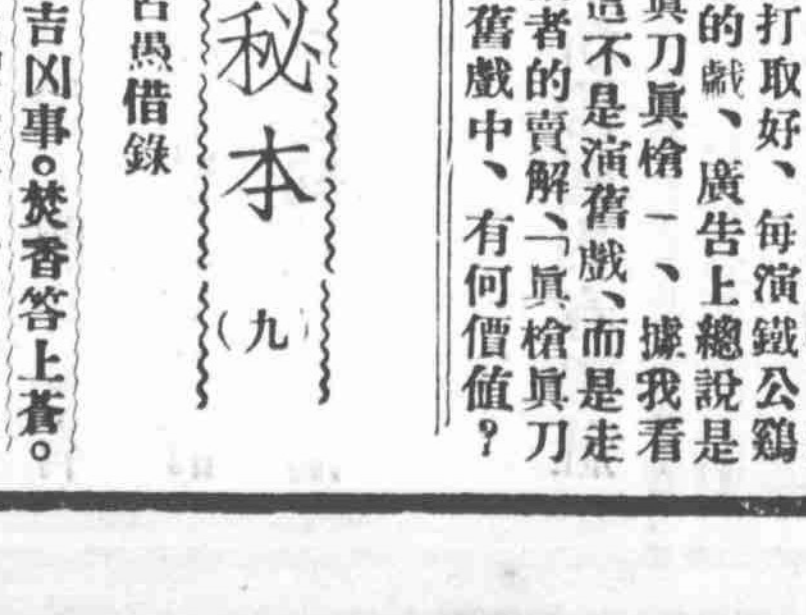 打取好、每演鐵公鷄
的戲、廣告上總說是
眞刀眞槍一、據我看
這不是演舊戲、而是走
者的賣解、「眞槍眞刀
舊戲中、有何價值？
秘本（九）
憑借錄
吉凶事。焚香答上蒼。